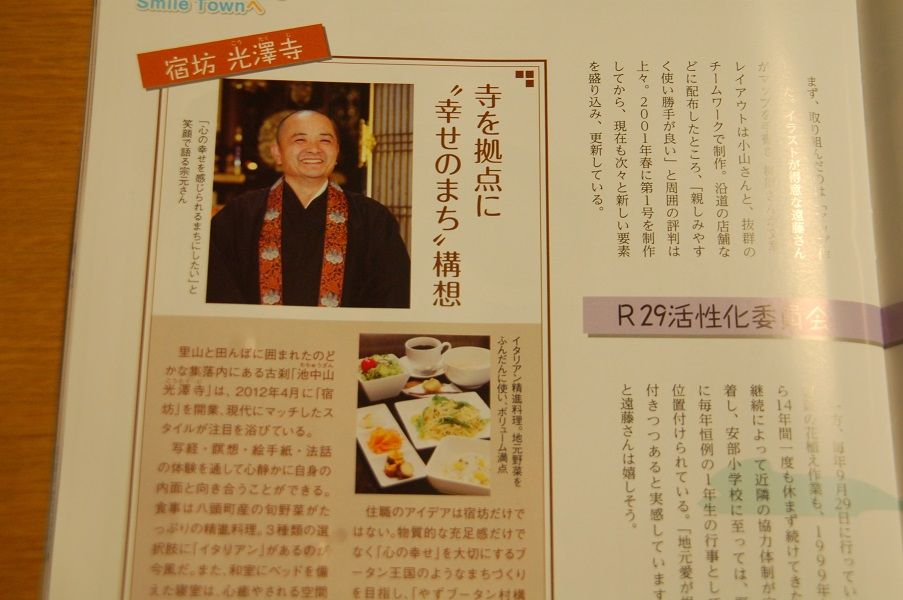 Smile Townへ
宿坊 光澤寺
こう たく じ
寺を拠点に
〝幸せのまち〟構想
「心の幸せを感じられるまちにしたい」と
笑顔で語る宗元さん
里山と田んぼに囲まれたのど
かな集落内にある古刹「池中山
光澤寺」は、2012年4月に「宿
坊」を開業、現代にマッチしたス
タイルが注目を浴びている。
写経・瞑想・絵手紙・法話
の体験を通して心静かに自身の
内面と向き合うことができる。
食事は八頭町産の旬野菜がた
っぷりの精進料理。3種類の選
択肢に「イタリアン」があるのが
今風だ。また、和室にベッドを備
えた寝室は、心癒やされる空間
イタリアン精進料理。地元野菜を
ふんだんに使い、ボリューム満点
住職のアイデアは宿坊だけで
はない。物質的な充足感だけで
なく「心の幸せ」を大切にするブ
ータン王国のようなまちづくり
を目指し、「やずブータン村構
まず、取り組んだのは
た。イラストが得意な遠藤さん
レイアウトは小山さんと、抜群の
チームワークで制作。沿道の店舗な
どに配布したところ、「親しみやす
く使い勝手が良い」と周囲の評判は
上々。2001年春に第1号を制作
してから、現在も次々と新しい要素
を盛り込み、更新している。
R29活性化委員会
方、毎年9月29日に行ってい
の花植え作業も、1999年
ら14年間一度も休まず続けてきた
継続によって近隣の協力体制が
着し、安部小学校に至っては、
に毎年恒例の1年生の行事として
位置付けられている。「地元愛が
付きつつあると実感しています
と遠藤さんは嬉しそう。